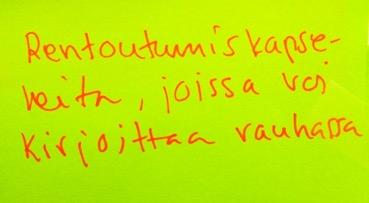 Rentoutumiskapse-
leita, joissa voi
kirjoittaa rauhassa